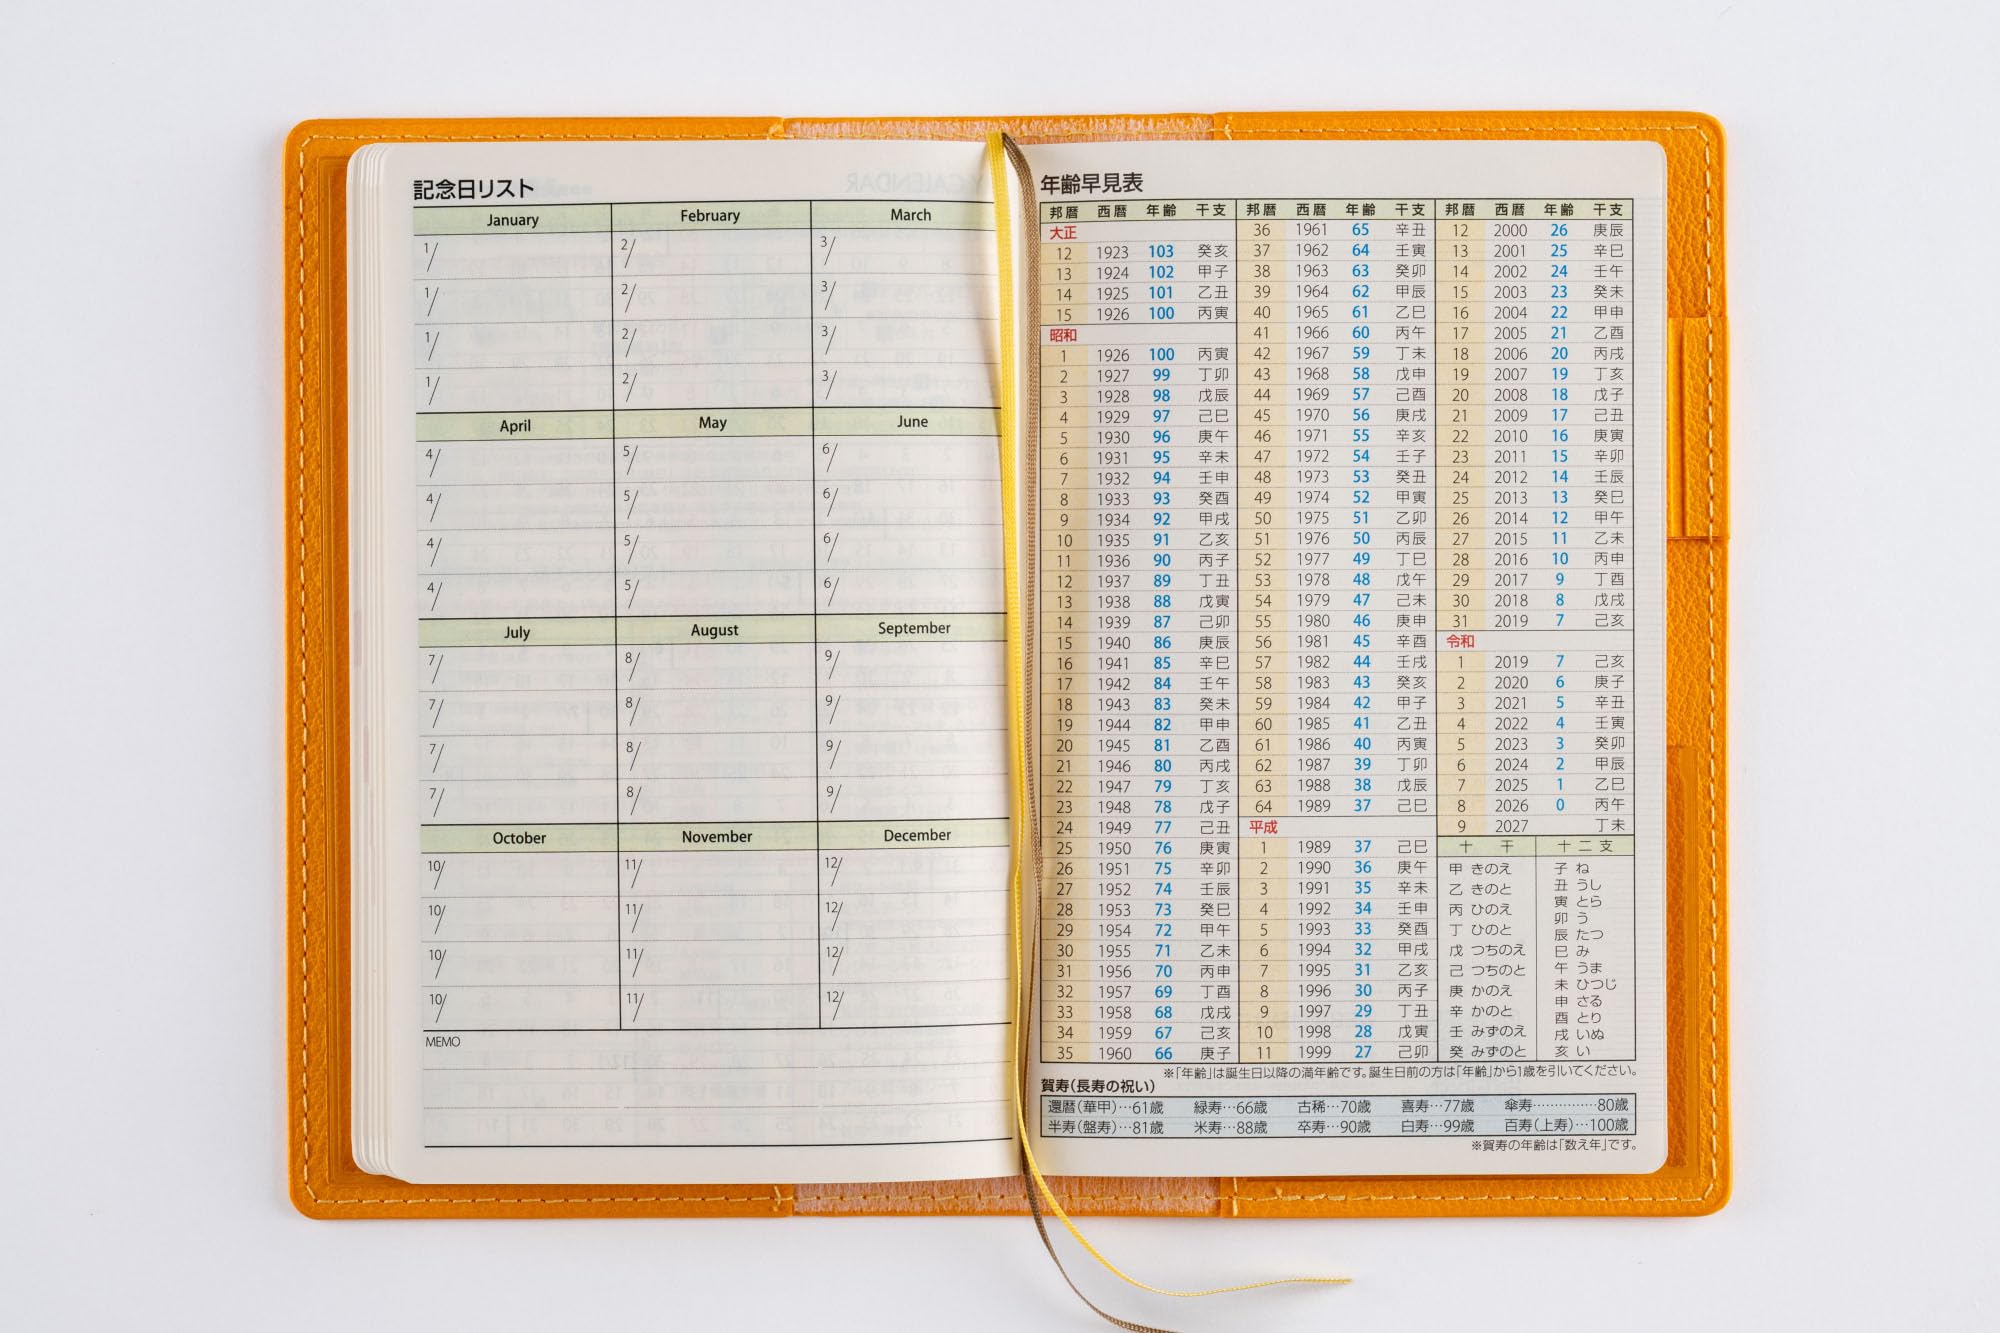 記念日リスト
January February March
1/ 2/ 3/
1/ 2/ 3/
1/ 2/ 3/
1/ 2/ 3/
April May June
4/ 5/ 6/
4/ 5/ 6/
4/ 5/ 6/
4/ 5/ 6/
July August September
7/ 8/ 9/
7/ 8/ 9/
7/ 8/ 9/
7/ 8/ 9/
October November December
10/ 11/ 12/
10/ 11/ 12/
10/ 11/ 12/
10/ 11/ 12/
MEMO
年齢早見表
邦暦 西暦 年齢 干支
大正
12 1923 103 癸亥
13 1924 102 甲子
14 1925 101 乙丑
15 1926 100 丙寅
昭和
1 1926 100 丙寅
2 1927 99 丁卯
3 1928 98 戊辰
4 1929 97 己巳
5 1930 96 庚午
6 1931 95 辛未
7 1932 94 壬申
8 1933 93 癸酉
9 1934 92 甲戌
10 1935 91 乙亥
11 1936 90 丙子
12 1937 89 丁丑
13 1938 88 戊寅
14 1939 87 己卯
15 1940 86 庚辰
16 1941 85 辛巳
17 1942 84 壬午
18 1943 83 癸未
19 1944 82 甲申
20 1945 81 乙酉
21 1946 80 丙戌
22 1947 79 丁亥
23 1948 78 戊子
24 1949 77 己丑
25 1950 76 庚寅
26 1951 75 辛卯
27 1952 74 壬辰
28 1953 73 癸巳
29 1954 72 甲午
30 1955 71 乙未
31 1956 70 丙申
32 1957 69 丁酉
33 1958 68 戊戌
34 1959 67 己亥
35 1960 66 庚子
邦暦 西暦 年齢 干支
36 1961 65 辛丑
37 1962 64 壬寅
38 1963 63 癸卯
39 1964 62 甲辰
40 1965 61 乙巳
41 1966 60 丙午
42 1967 59 丁未
43 1968 58 戊申
44 1969 57 己酉
45 1970 56 庚戌
46 1971 55 辛亥
47 1972 54 壬子
48 1973 53 癸丑
49 1974 52 甲寅
50 1975 51 乙卯
51 1976 50 丙辰
52 1977 49 丁巳
53 1978 48 戊午
54 1979 47 己未
55 1980 46 庚申
56 1981 45 辛酉
57 1982 44 壬戌
58 1983 43 癸亥
59 1984 42 甲子
60 1985 41 乙丑
61 1986 40 丙寅
62 1987 39 丁卯
63 1988 38 戊辰
64 1989 37 己巳
平成
1 1989 37 己巳
2 1990 36 庚午
3 1991 35 辛未
4 1992 34 壬申
5 1993 33 癸酉
6 1994 32 甲戌
7 1995 31 乙亥
8 1996 30 丙子
9 1997 29 丁丑
10 1998 28 戊寅
11 1999 27 己卯
邦暦 西暦 年齢 干支
12 2000 26 庚辰
13 2001 25 辛巳
14 2002 24 壬午
15 2003 23 癸未
16 2004 22 甲申
17 2005 21 乙酉
18 2006 20 丙戌
19 2007 19 丁亥
20 2008 18 戊子
21 2009 17 己丑
22 2010 16 庚寅
23 2011 15 辛卯
24 2012 14 壬辰
25 2013 13 癸巳
26 2014 12 甲午
27 2015 11 乙未
28 2016 10 丙申
29 2017 9 丁酉
30 2018 8 戊戌
31 2019 7 己亥
令和
1 2019 7 己亥
2 2020 6 庚子
3 2021 5 辛丑
4 2022 4 壬寅
5 2023 3 癸卯
6 2024 2 甲辰
7 2025 1 乙巳
8 2026 0 丙午
9 2027 丁未
十干
甲 きのえ
乙 きのと
丙 ひのえ
丁 ひのと
戊 つちのえ
己 つちのと
庚 かのえ
辛 かのと
壬 みずのえ
癸 みずのと
十二支
子 ね
丑 うし
寅 とら
卯 う
辰 たつ
巳 み
午 うま
未 ひつじ
申 さる
酉 とり
戌 いぬ
亥 い
※「年齢」は誕生日以降の満年齢です。誕生日前の方は「年齢」から1歳を引いてください。
賀寿(長寿の祝い)
還暦(華甲)…61歳 緑寿…66歳 古稀…70歳 喜寿…77歳 傘寿……………80歳
半寿(盤寿)…81歳 米寿…88歳 卒寿…90歳 白寿…99歳 百寿(上寿)…100歳
※賀寿の年齢は「数え年」です。